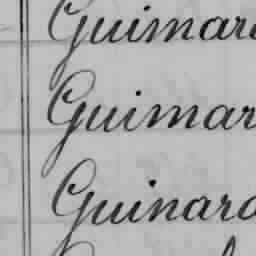 Guimar
Guimar
Guinar